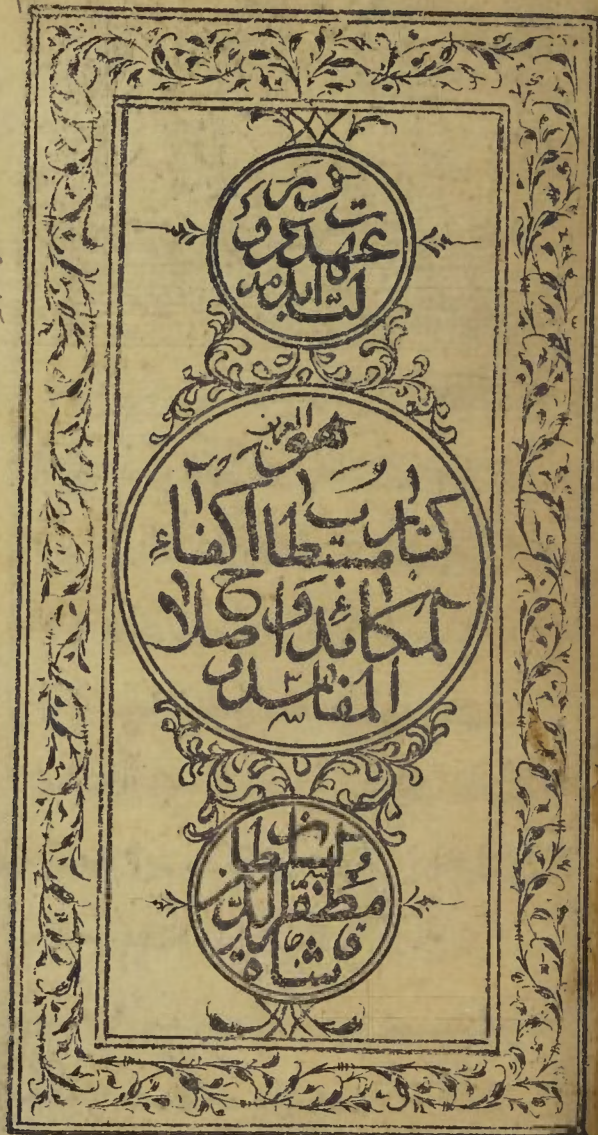 در
عهد
دولت ابد مدت
هو العزیز
کتاب مستطاب اکفاء
المکائد و اصلاح
المفاسد
السلطان
مظفر الدین
شاه قاجار